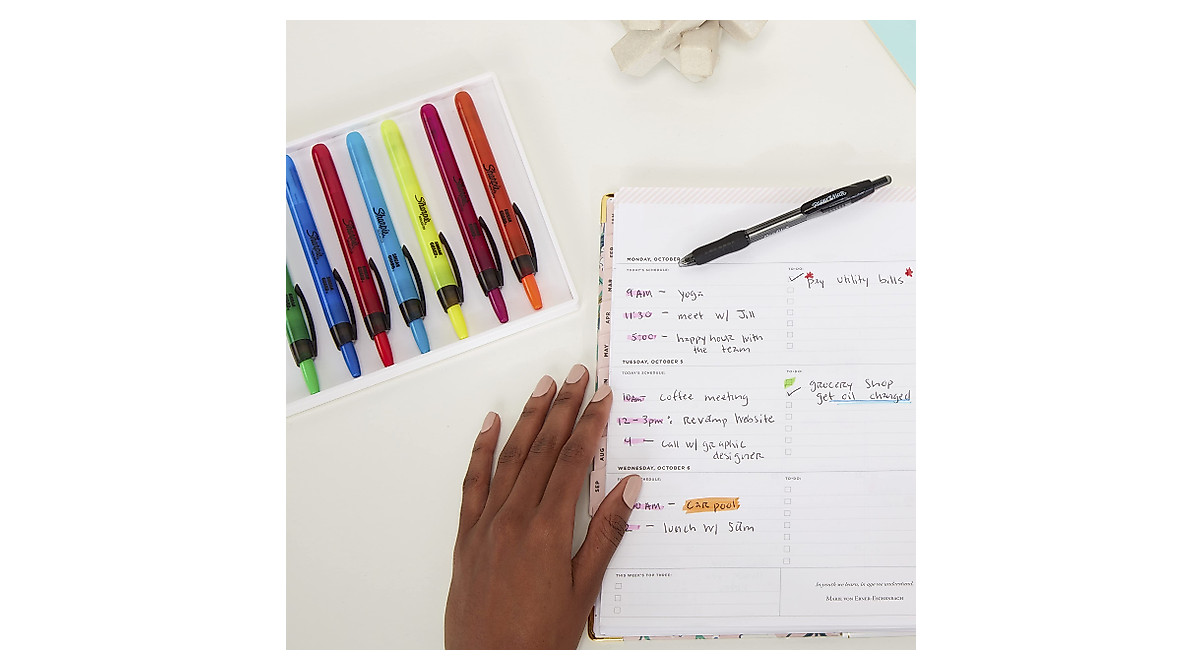 Sharpie
Sharpie
Sharpie
Sharpie
Sharpie
SMEAR
GUARD
SMEAR
GUARD
SMEAR
GUARD
MAR
APR
MAY
AUG
SEP
MONDAY, OCTOBER
TODAY'S SCHEDULE:
9 AM - yoga
11:30 - meet w/ Jill
5:00 - happy hour with
the team
TO-DO:
pay utility bills
TUESDAY, OCTOBER 5
TODAY'S SCHEDULE:
10am - Coffee meeting
12 - 3pm: Revamp Website
4 - call w/ graphic
designer
TO-DO:
grocery shop
get oil changed
WEDNESDAY, OCTOBER 6
SCHEDULE:
AM - car pool
2 - lunch w/ Sam
TO-DO:
THIS WEEK'S TOP THREE:
In youth we learn, in age we understand.
MARIE VON EBNER-ESCHENBACH